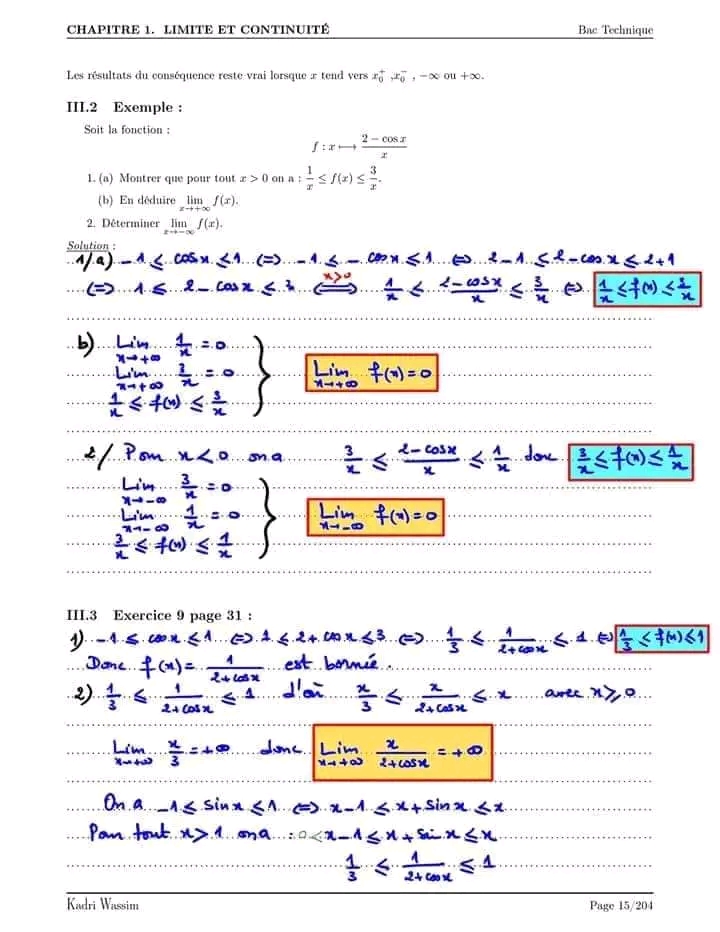 CHAPITRE 1. LIMITE ET CONTINUITÉ Bac Technique
Les résultats du conséquence reste vrai lorsque x tend vers x₀⁺ ,x₀⁻ , −∞ ou +∞.
III.2 Exemple :
Soit la fonction :
f : x ⟼ (2 − cos x)/x
1. (a) Montrer que pour tout x > 0 on a : 1/x ≤ f(x) ≤ 3/x.
(b) En déduire lim x→+∞ f(x).
2. Déterminer lim x→−∞ f(x).
Solution :
1/a) −1 ≤ cosx ≤ 1 ⟺ −1 ≤ −cosx ≤ 1 ⟺ 2−1 ≤ 2−cosx ≤ 2+1
⟺ 1 ≤ 2−cosx ≤ 3 ⟺ x>0 1/x ≤ (2−cosx)/x ≤ 3/x ⟺ 1/x ≤ f(x) ≤ 3/x
b) Lim x→+∞ 1/x = 0
Lim x→+∞ 3/x = 0 } Lim x→+∞ f(x) = 0
1/x ≤ f(x) ≤ 3/x
2/ Pour x < 0 on a 3/x ≤ (2−cosx)/x ≤ 1/x donc 3/x ≤ f(x) ≤ 1/x
Lim x→−∞ 3/x = 0
Lim x→−∞ 1/x = 0 } Lim x→−∞ f(x) = 0
3/x ≤ f(x) ≤ 1/x
III.3 Exercice 9 page 31 :
1) −1 ≤ cosx ≤ 1 ⟺ 1 ≤ 2+cosx ≤ 3 ⟺ 1/3 ≤ 1/(2+cosx) ≤ 1 ⟺ 1/3 ≤ f(x) ≤ 1
Donc f(x) = 1/(2+cosx) est bornée.
2) 1/3 ≤ 1/(2+cosx) ≤ 1 d'où x/3 ≤ x/(2+cosx) ≤ x avec x ≥ 0
Lim x→+∞ x/3 = +∞ donc Lim x→+∞ x/(2+cosx) = +∞
On a −1 ≤ sinx ≤ 1 ⟺ x−1 ≤ x+sinx ≤ x
Pour tout x > 1 on a : 0 < x−1 ≤ x+sinx ≤ x
1/3 ≤ 1/(2+cosx) ≤ 1
Kadri Wassim Page 15/204